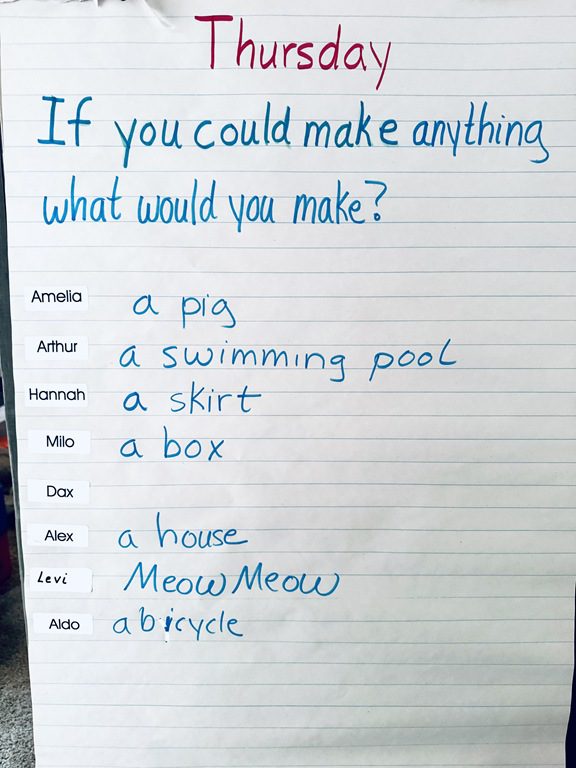 Thursday
If you could make anything
what would you make?
Amelia a pig
Arthur a swimming pool
Hannah a skirt
Milo a box
Dax
Alex a house
Levi MeowMeow
Aldo a bicycle